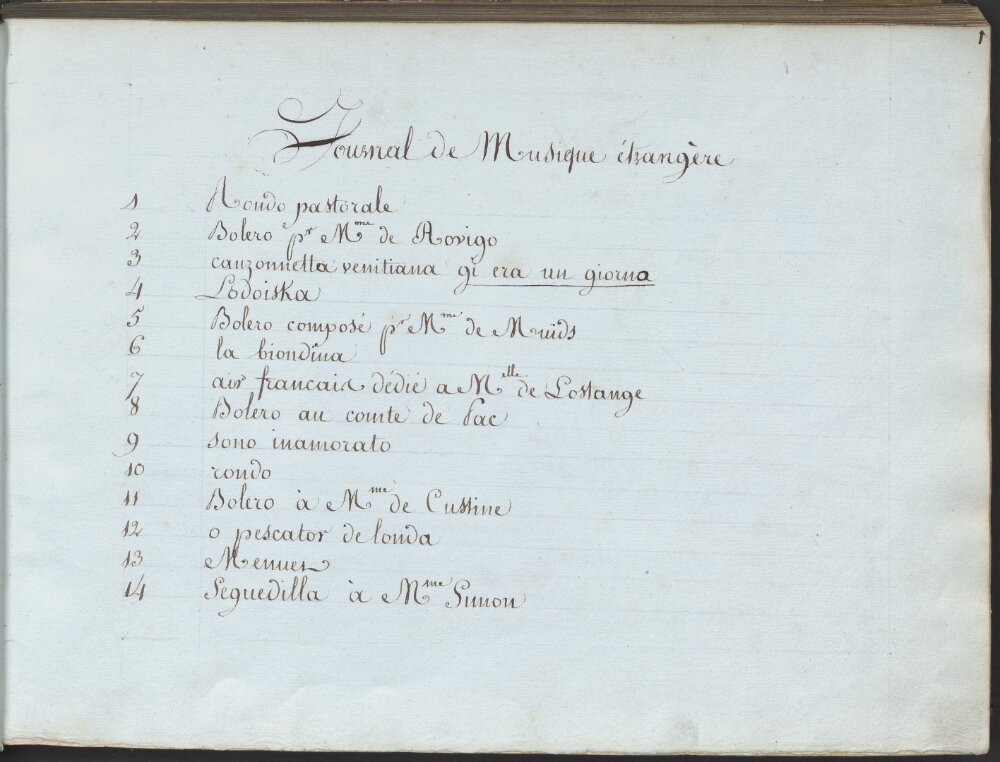 1
Journal de Musique étrangère
1 Rondo pastorale
2 Bolero pr Mme de Rovigo
3 canzonnetta venitiana gi era un giorna
4 Lodoiska
5 Bolero composé pr Mme de Muids
6 la biondina
7 air francais dédié a Melle de Lostange
8 Bolero au comte de Pac
9 sono inamorato
10 rondo
11 Bolero à Mme de Custine
12 o pescator de londa
13 Menuet
14 Seguedilla à Mme Simon